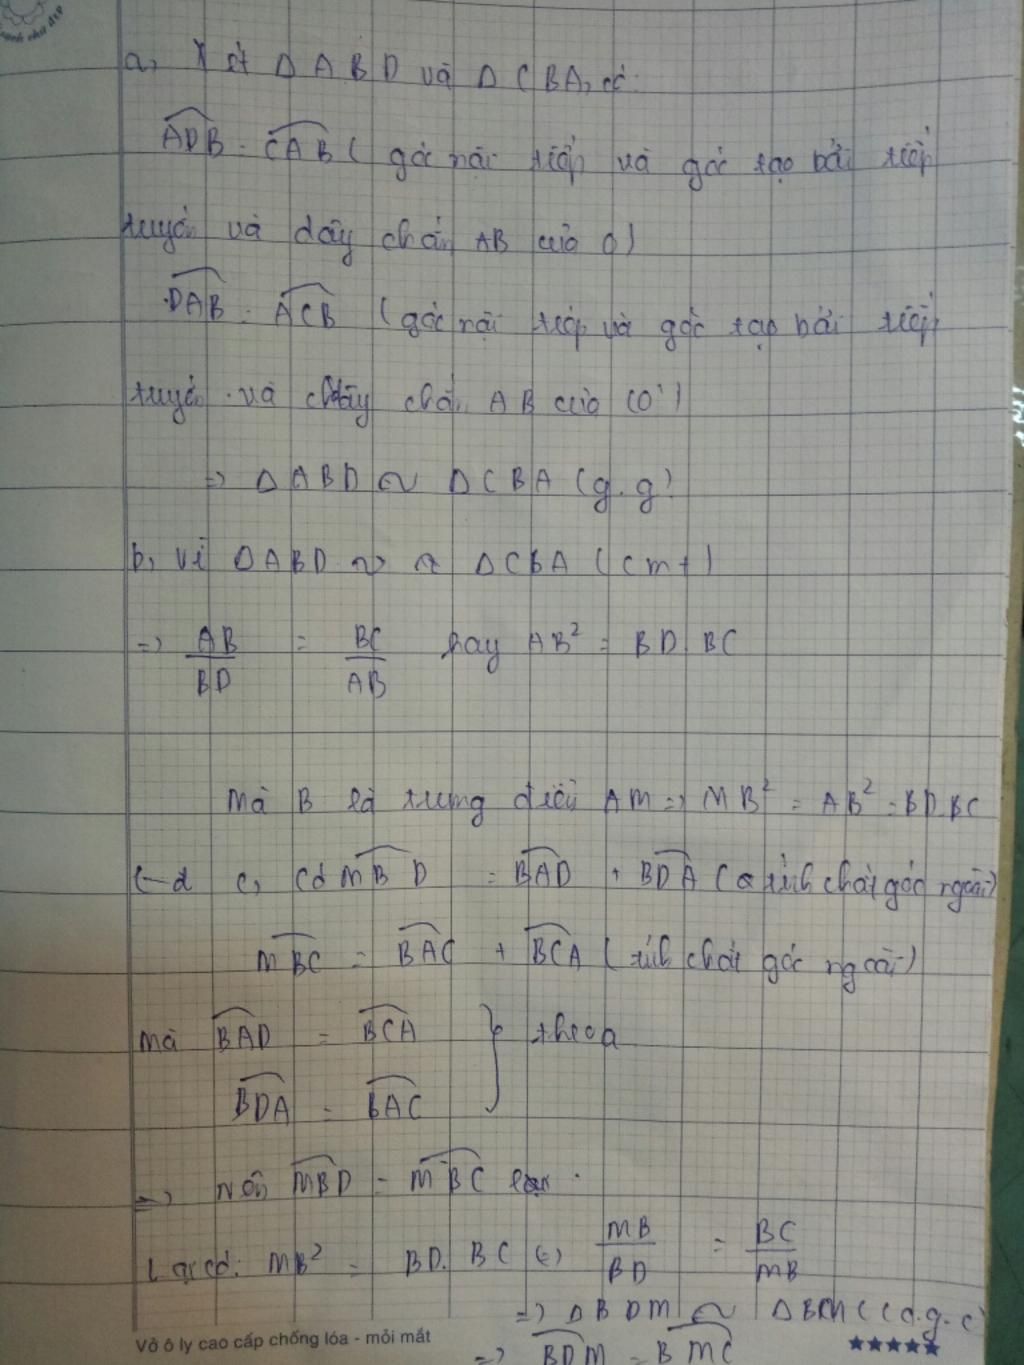 a, Xét Δ ABD và Δ CBA, có:
ADB = CAB ( góc nội tiếp và góc tạo bởi tiếp
tuyến và dây chắn AB của O)
DAB = ACB (góc nội tiếp và góc tạo bởi tiếp
tuyến và dây chắn AB của (O')
=> Δ ABD ~ Δ CBA (g.g)
b, vì Δ ABD ~ Δ CBA (cmt)
=> AB/BD = BC/AB hay AB² = BD.BC
Mà B là trung điểm AM => MB² = AB² = BD.BC
c, Có MBD = BAD + BDA ( tính chất góc ngoài)
MBC = BAC + BCA ( tính chất góc ngoài)
mà BAD = BCA } theo a
BDA = BAC
=> Nên MBD = MBC
Lại có: MB² = BD. BC (=) MB/BD = BC/MB
=> Δ BDM ~ Δ BCM (c.g.c)
=> BDM = BMC
Vở ô ly cao cấp chống lóa - mỏi mắt ★★★★★